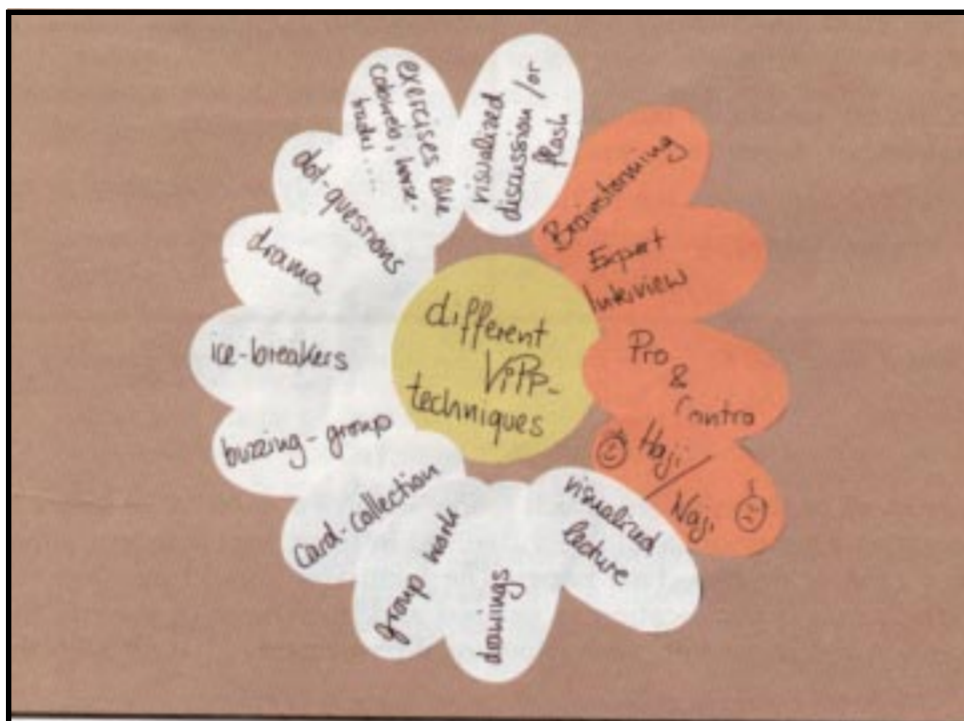 different
ViPP-
techniques
visualized
discussion / or
flash
Brainstorming
Expert
Interview
Pro
&
Contra
Haji /
Naji
visualized
lecture
drawings
group work
card-collection
buzzing-group
ice-breakers
drama
dot-questions
exercises like